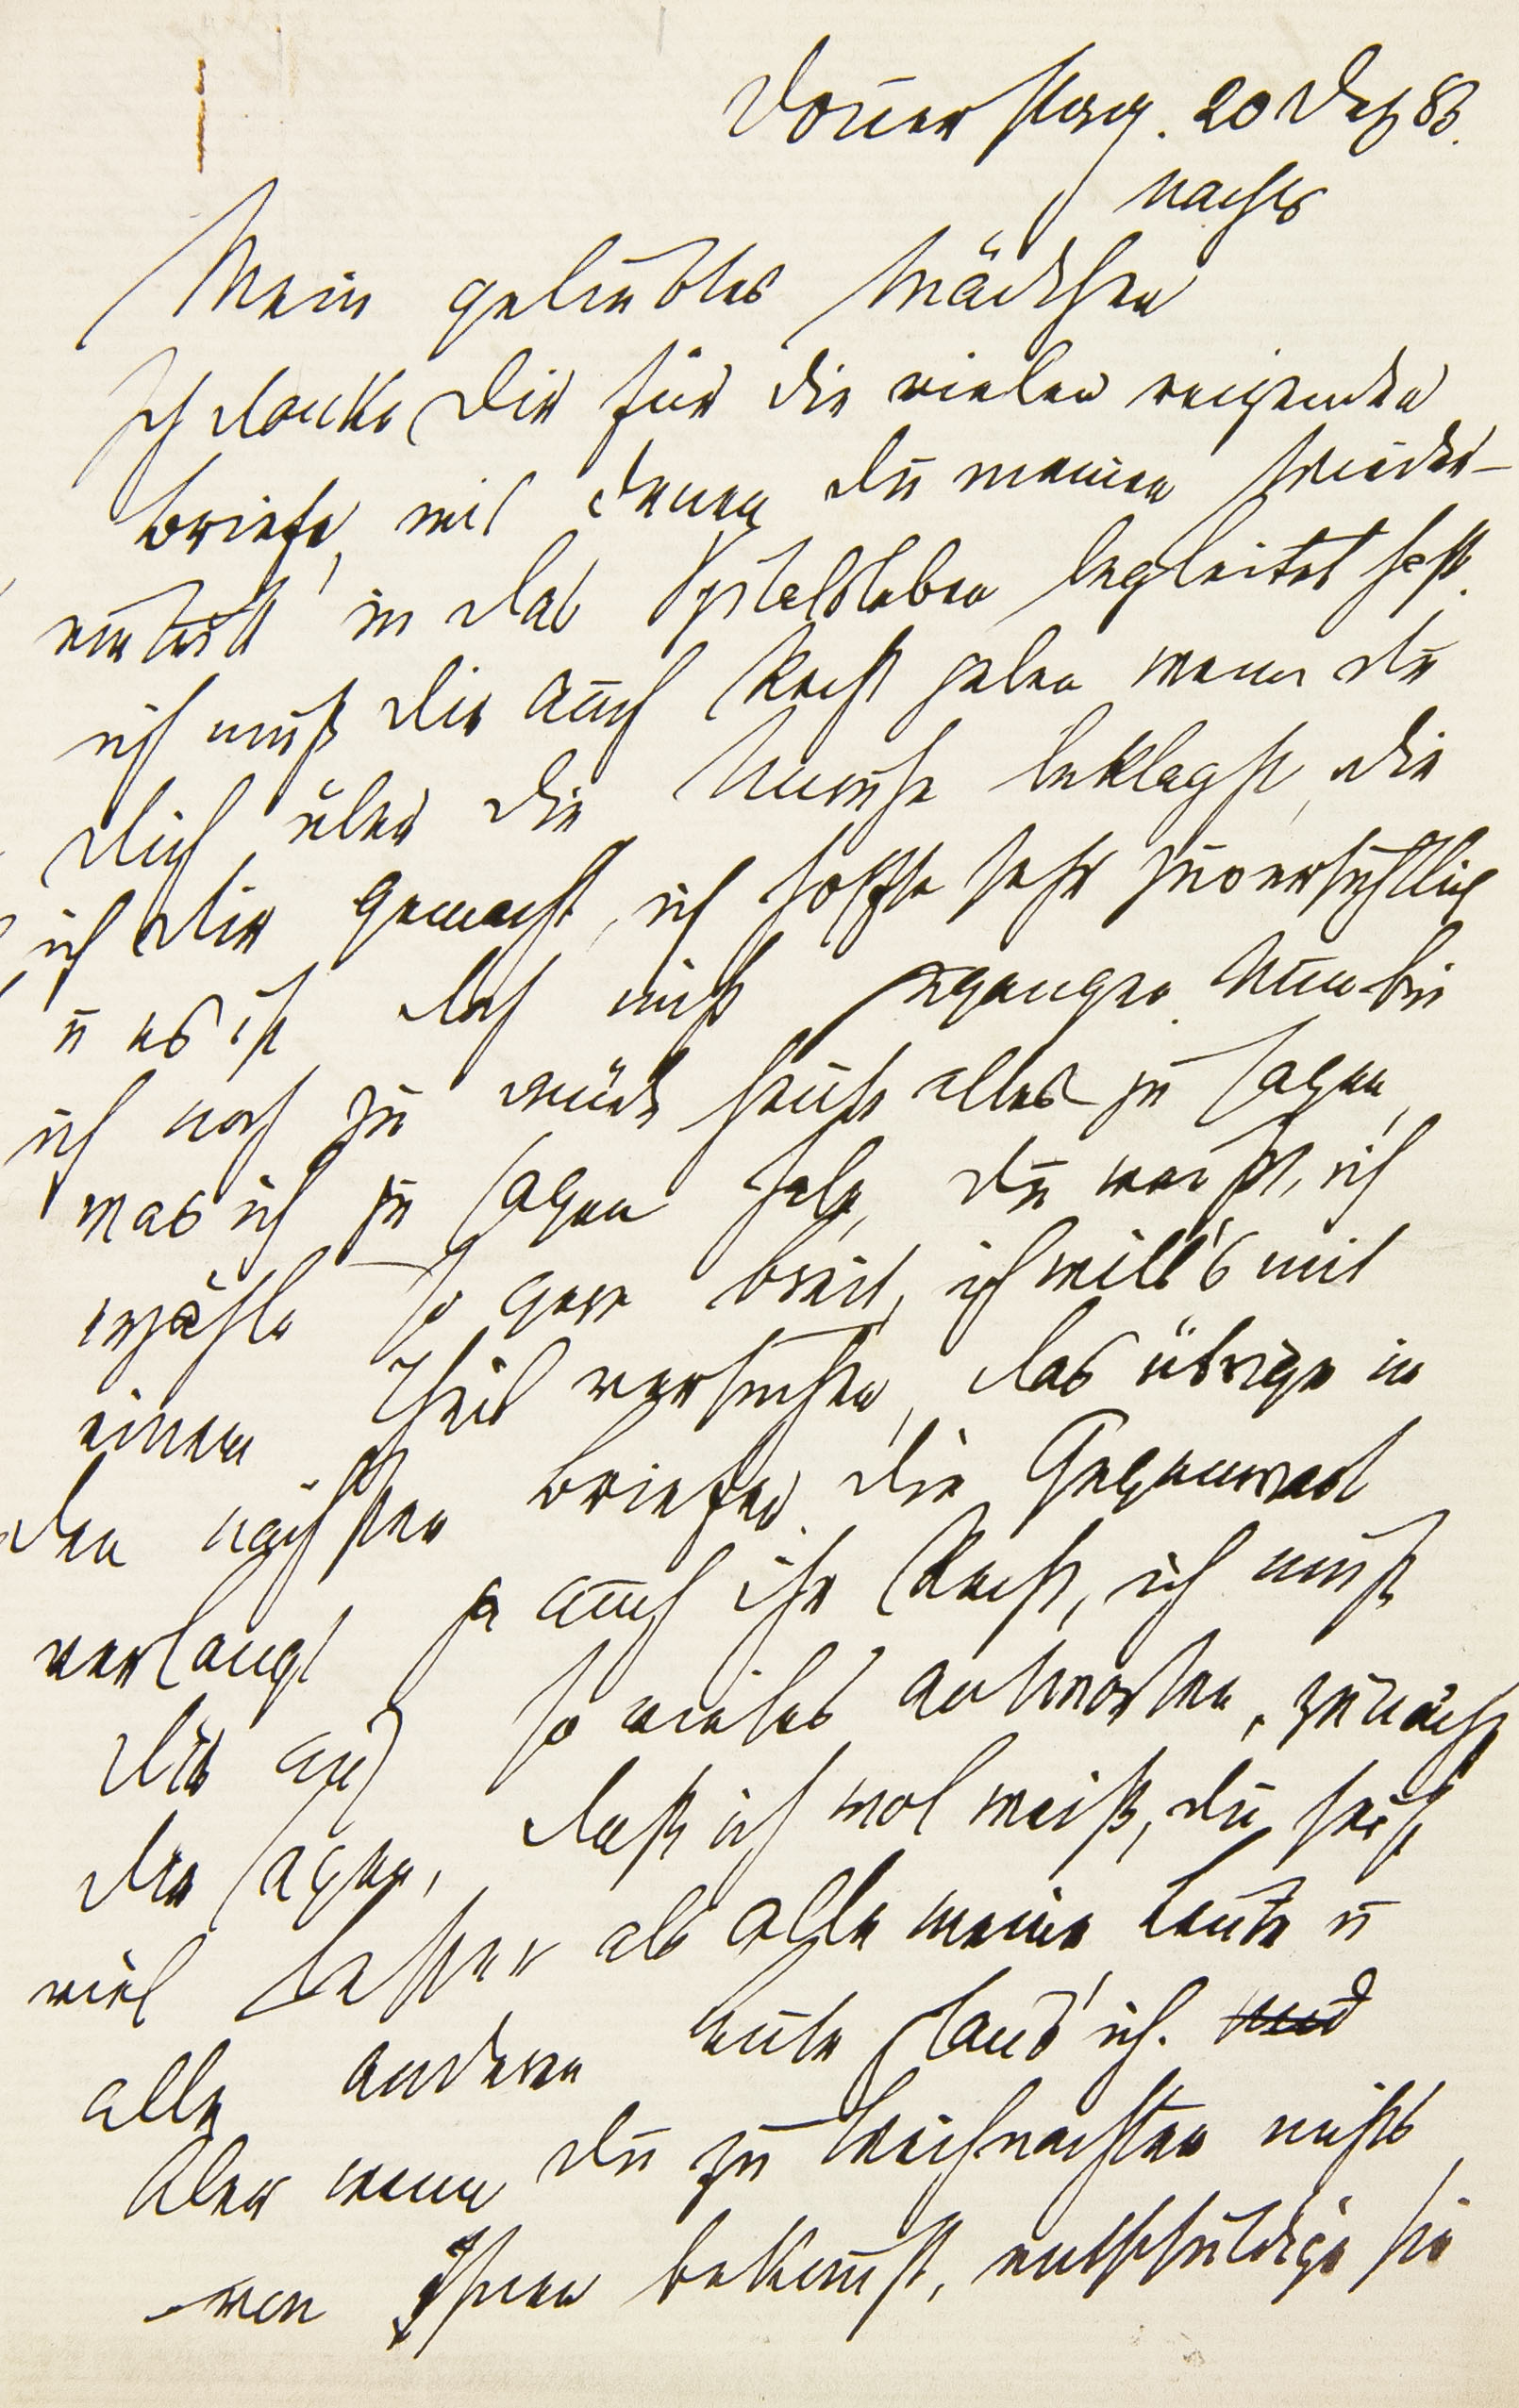 Donnerstag. 20 Dez 83.
nachts
Mein geliebtes Mädchen
Ich danke Dir für die vielen reizenden
Briefe, mit denen Du meinen Wieder-
eintritt in das Spitalsleben begleitet hast.
ich muß Dir auch Recht geben wenn Du
Dich über die Unruhe beklagst, die
ich Dir gemacht, ich hoffte sehr zuversichtlich
u es ist doch nicht gegangen. Nun bin
ich noch zu müde heute alles zu sagen,
was ich zu sagen habe, Du weißt, ich
erzähle so gern breit, ich will's mit
einem Theil versuchen, das übrige in
den nächsten Briefen. Die Gegenwart
verlangt ja auch ihr Recht, ich muß
Dir auf so vieles antworten, zunächst
Dir sagen, daß ich wol weiß, Du seist
viel besser als alle meine Leute u
alle anderen Leute fand' ich. und
Aber wenn Du zu Weihnachten nichts
von Ihnen bekommst, entschuldige sie